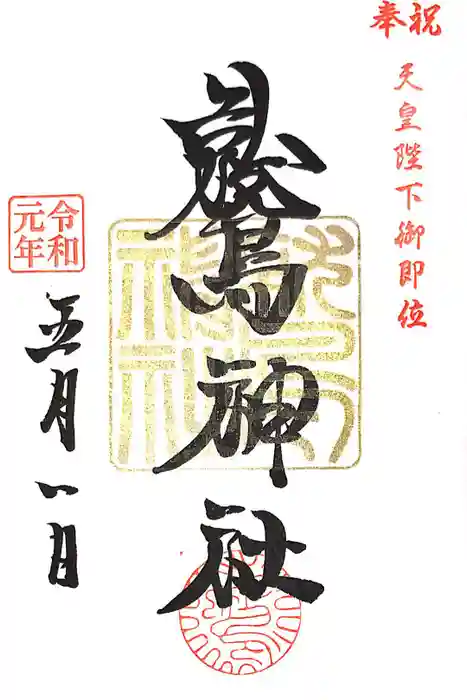 奉祝
天皇陛下御即位
鷲神社
令和
元年
五月一日